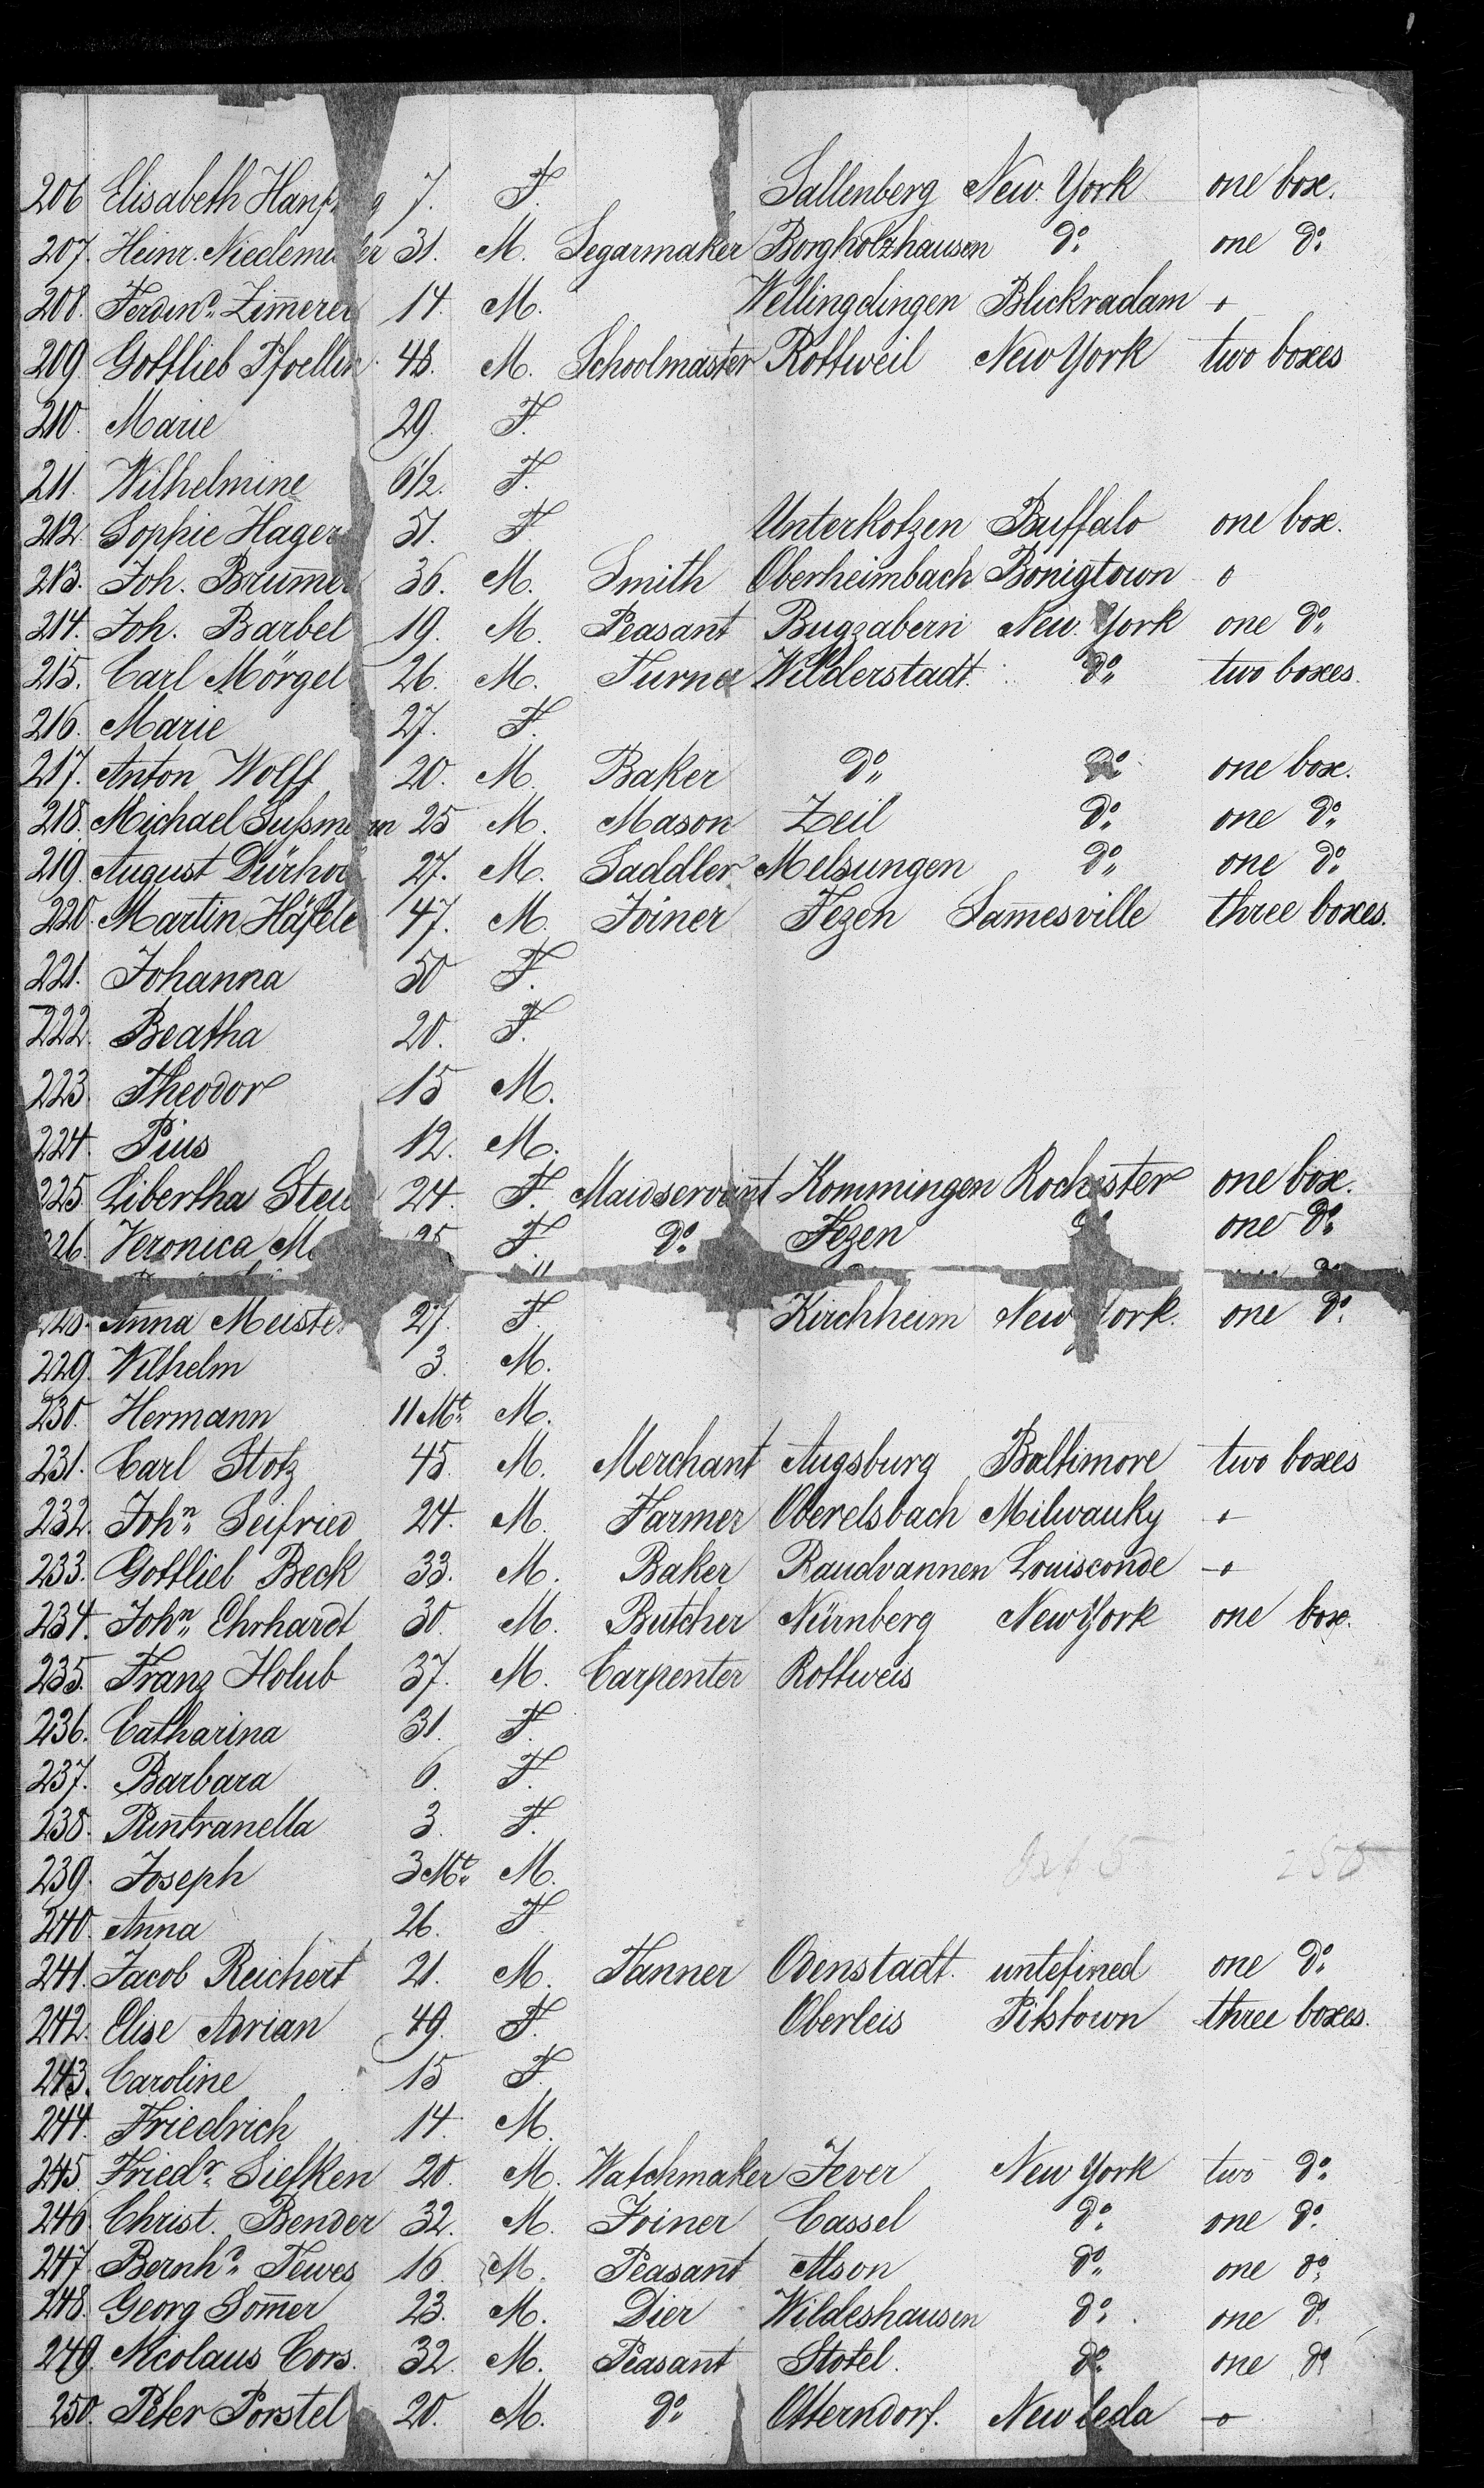 206 Elisabeth 7. F. Sallenberg New York one box.
207. Heinr. 31. M. Segarmaker Borgholzhausen do. one do.
208. Ferdind. Zim̄erer 14. M. Wellingdingen Blickradam +
209 Gottlieb 48. M. Schoolmaster Rottweil New York two boxes
210. Marie 29. F.
211. Wilhelmine 6 1/2. F.
212. Sophie Hager 51. F. Unterkotzen Buffalo one box.
213. Joh. Brum̄er 36. M. Smith Oberheimbach Bonigtown o
214. Joh. Barbel 19. M. Peasant Bugzabern New York one do.
215. Carl Mörgel 26. M. Turner Wilderstadt. do. two boxes.
216. Marie 27. F.
217. Anton Wolff 20. M. Baker do. do. one box.
218. Michael Sußmann 25 M. Mason Zeil do. one do.
219. August 27. M. Saddler Melsungen do. one do.
220. Martin Häfele 47. M. Joiner Fezen Sam̄esville three boxes.
221. Johanna 50 F.
222. Beatha 20. F.
223. Theodor 15 M.
224. Pius 12. M.
225. Libertha 24. F. Maidservant Kommingen Rochester one box.
226. Veronica 25 F. do. Fezen one do.
Anna Meister 27. F. Kirchheim New York. one do.
229. Wilhelm 3. M.
230. Hermann 11 Mt. M.
231. Carl Stotz 45. M. Merchant Augsburg Baltimore two boxes
232. John. Seifried 24. M. Farmer Oberelsbach Milwauky +
233. Gottlieb Beck 33. M. Baker Raudvannen Louisconde o
234. John. Ehrhardt 30. M. Butcher Nürnberg New York one box.
235. Franz Holub 37. M. Carpenter Rottweis
236. Catharina 31. F.
237. Barbara 6. F.
238. Puntranella 3. F.
239. Joseph 3 Mt. M.
240. Anna 26. F.
241. Jacob Reichert 21. M. Tanner Odenstadt. untefined one do.
242. Elise Adrian 49. F. Oberleis Pitstown three boxes.
243. Caroline 15 F.
244. Friedrich 14. M.
245. Friedr. Siefken 20. M. Watchmaker Jever New York two do.
246. Christ. Bender 32. M. Joiner Cassel do. one do.
247. Bernhd. Tewes 16. M. Peasant Alson do. one do.
248. Georg Som̄er 23. M. Dier Wildeshausen do. one do.
249. Nicolaus Cors. 32. M. Peasant Stotel. do. one do
250. Peter Porstel 20. M. do. Otterndorf. New Leda o